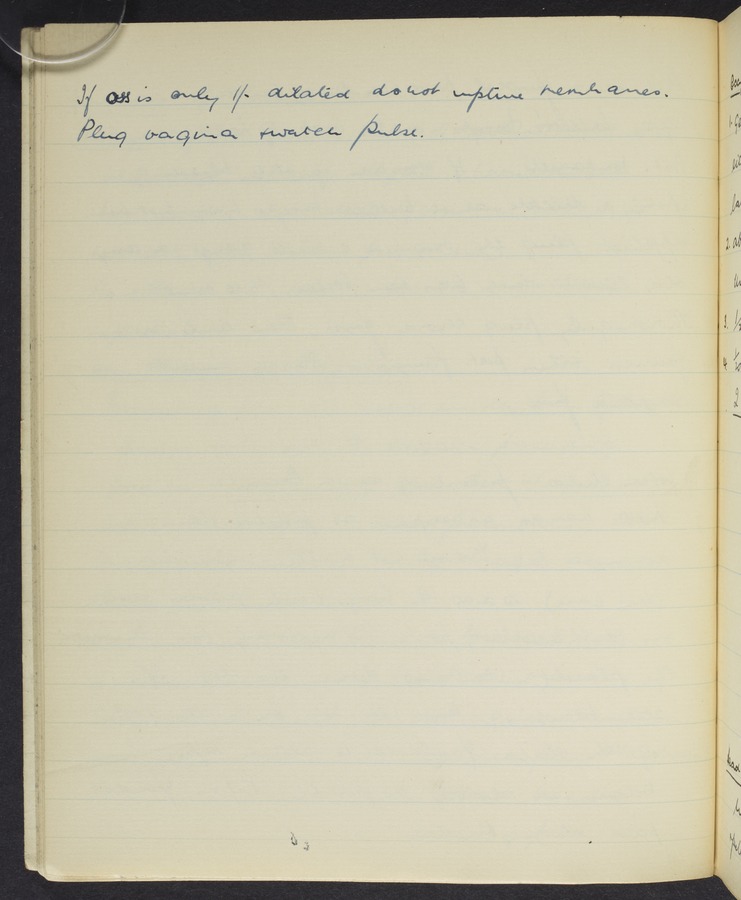 If oss is only 1/- dilated do not rupture membranes.
Plug vagina & watch pulse.